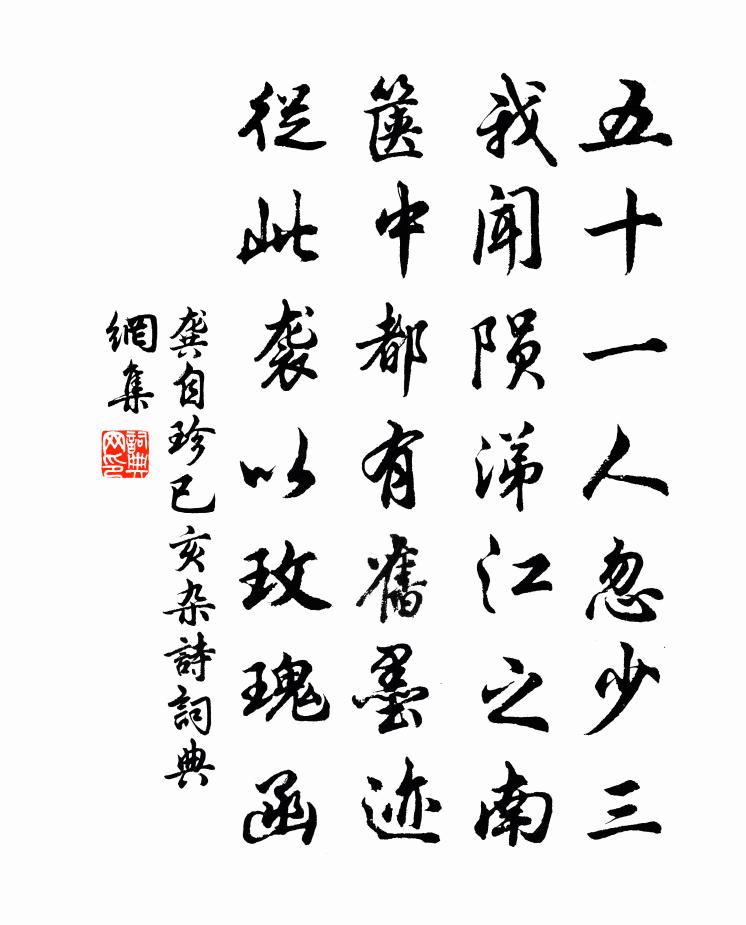 五十一人忽少三
我闻陨涕江之南
箧中都有舊墨迹
從此袭以玫瑰函
龚自珍己亥杂詩詞典
網集
詞典
网印